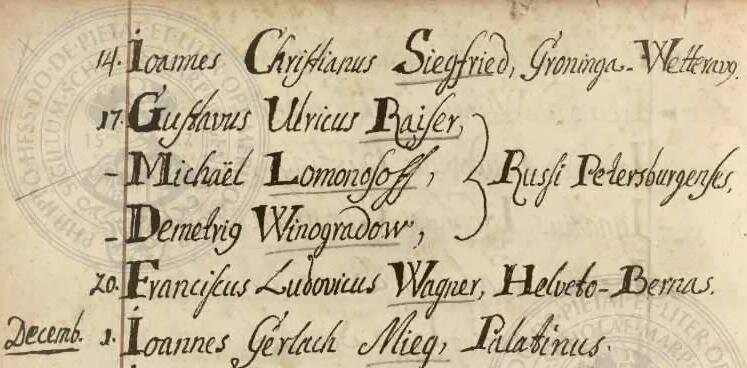 14. Ioannes Christianus Siegfried, Groninga-Wetterav9.
17. Gustavus Ulricus Raiser,
– Michaël Lomonosoff, } Russi Petersburgenses,
– Demetri9 Winogradow,
20. Franciscus Ludovicus Wagner, Helveto-Bernas.
Decemb. 1. Ioannes Gerlach Mieg, Palatinus.